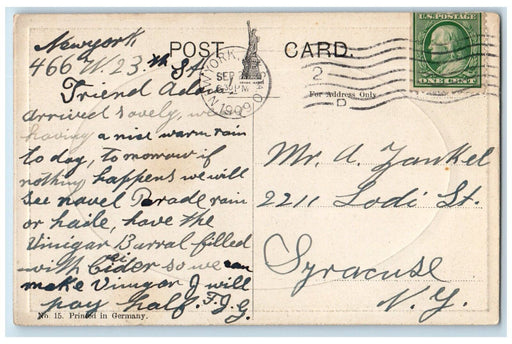 Newyork
466 W. 23.th St.
Friend Adam
arrived savely, we
having a nise warm rain
to day, to morrow if
nothing happens we will
see navel Parade rain
or haile, have the
Vinigar Barral filled
with Cider so we can
make Vinugar J will
pay half. F.J.G.
No. 15. Printed in Germany.
POST CARD.
NEW YORK, N.Y.
SEP
PM
1909
2
D
For Address Only
U.S. POSTAGE
ONE CENT
Mr. A. Yankel
2211 Lodi St.
Syracuse
N.Y.